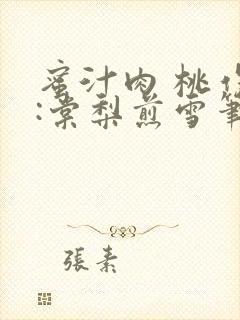 蜜汁肉桃作
:棠梨煎雪筆
張素